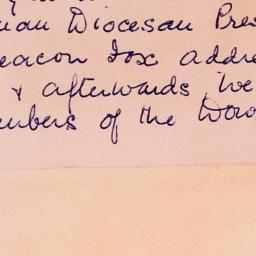 man Diocesan Pres
eacon Fox addre
& afterwards we
embers of the Dow